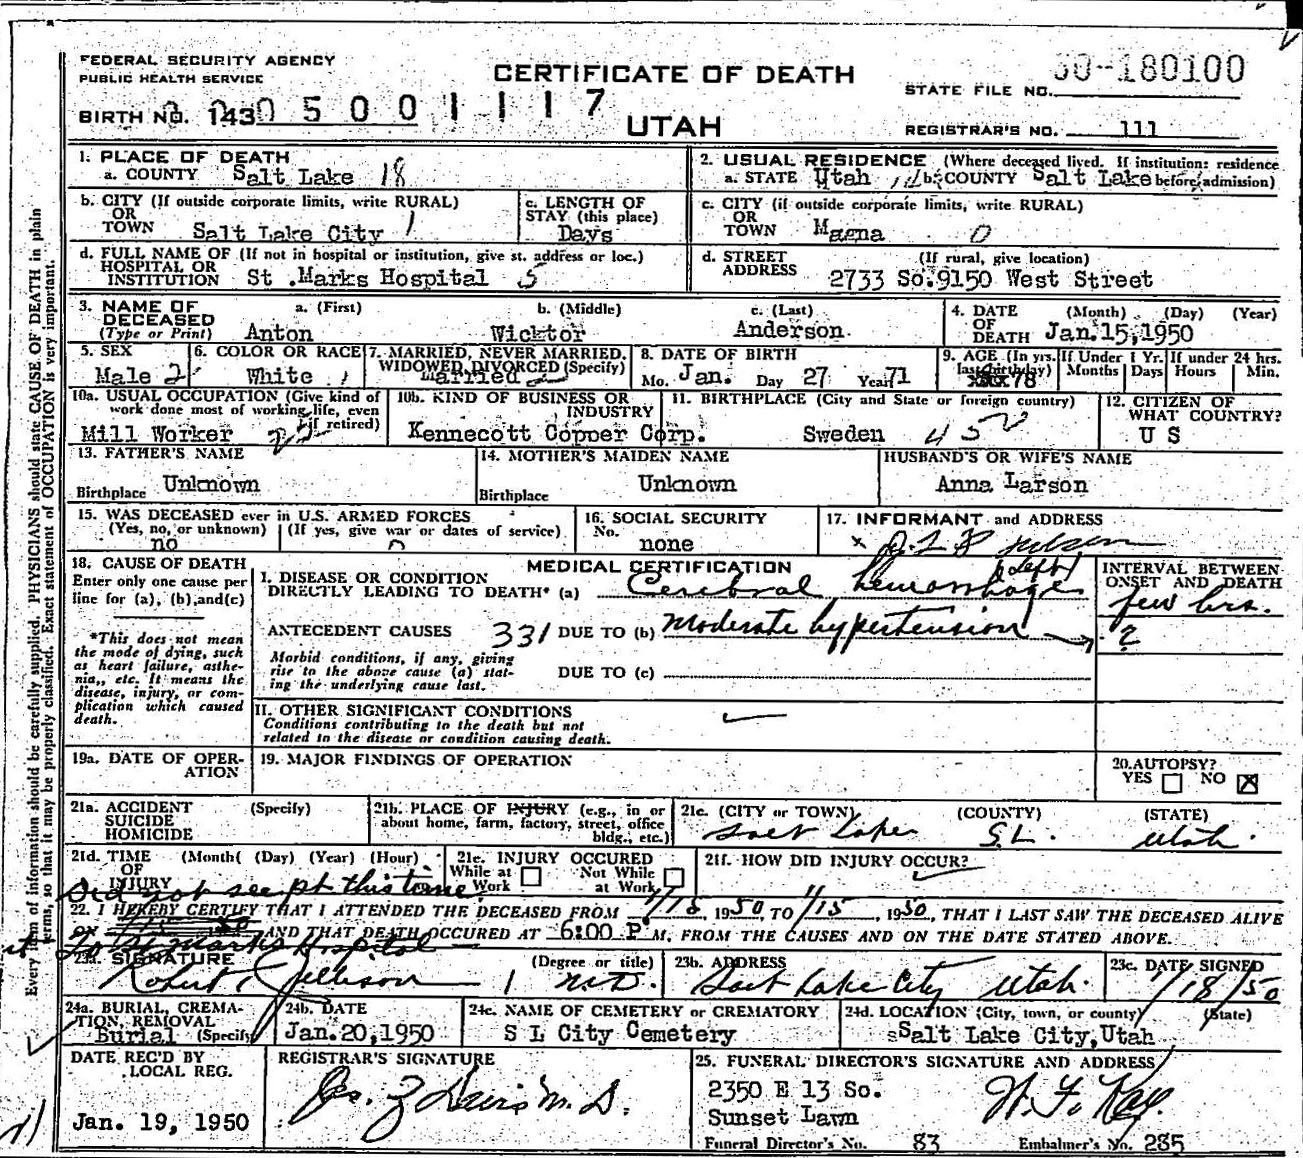 FEDERAL SECURITY AGENCY
PUBLIC HEALTH SERVICE
CERTIFICATE OF DEATH
UTAH
BIRTH NO. 143 0 5 0 0 1 1 1 7
STATE FILE NO. 50-180100
REGISTRAR'S NO. 111
1. PLACE OF DEATH
a. COUNTY Salt Lake 18
2. USUAL RESIDENCE (Where deceased lived. If institution: residence before admission)
a. STATE Utah b. COUNTY Salt Lake
b. CITY (If outside corporate limits, write RURAL)
OR
TOWN Salt Lake City 1
c. LENGTH OF
STAY (this place)
Days
c. CITY (if outside corporate limits, write RURAL)
OR
TOWN Magna 0
d. FULL NAME OF (If not in hospital or institution, give st. address or loc.)
HOSPITAL OR
INSTITUTION St. Marks Hospital 5
d. STREET (If rural, give location)
ADDRESS 2733 So. 9150 West Street
3. NAME OF DECEASED
(Type or Print)
a. (First) Anton
b. (Middle) Wicktor
c. (Last) Anderson
4. DATE OF DEATH (Month) (Day) (Year)
Jan. 15, 1950
5. SEX
Male 2
6. COLOR OR RACE
White 1
7. MARRIED, NEVER MARRIED, WIDOWED, DIVORCED (Specify)
Married 2
8. DATE OF BIRTH
Mo. Jan. Day 27 Year 71
9. AGE (In yrs. last birthday)
78
If Under 1 Yr. Months Days
If under 24 hrs. Hours Min.
10a. USUAL OCCUPATION (Give kind of work done most of working life, even if retired)
Mill Worker
10b. KIND OF BUSINESS OR INDUSTRY
Kennecott Copper Corp.
11. BIRTHPLACE (City and State or foreign country)
Sweden
12. CITIZEN OF WHAT COUNTRY?
U S
13. FATHER'S NAME
Unknown
Birthplace
14. MOTHER'S MAIDEN NAME
Unknown
Birthplace
HUSBAND'S OR WIFE'S NAME
Anna Larson
15. WAS DECEASED ever in U.S. ARMED FORCES
(Yes, no, or unknown) (If yes, give war or dates of service)
no
16. SOCIAL SECURITY No.
none
17. INFORMANT and ADDRESS
x
18. CAUSE OF DEATH
Enter only one cause per line for (a), (b), and(c)
*This does not mean the mode of dying, such as heart failure, asthenia,, etc. It means the disease, injury, or complication which caused death.
MEDICAL CERTIFICATION
I. DISEASE OR CONDITION
DIRECTLY LEADING TO DEATH* (a) Cerebral hemorrhage (left)
INTERVAL BETWEEN ONSET AND DEATH
few hrs.
ANTECEDENT CAUSES 331 DUE TO (b) Moderate hypertension ?
Morbid conditions, if any, giving rise to the above cause (a) stating the underlying cause last.
DUE TO (c)
II. OTHER SIGNIFICANT CONDITIONS
Conditions contributing to the death but not related to the disease or condition causing death.
19a. DATE OF OPERATION
19. MAJOR FINDINGS OF OPERATION
20. AUTOPSY?
YES NO X
21a. ACCIDENT (Specify)
SUICIDE
HOMICIDE
21b. PLACE OF INJURY (e.g., in or about home, farm, factory, street, office bldg., etc.)
21c. (CITY or TOWN) (COUNTY) (STATE)
Salt Lake S.L. Utah
21d. TIME OF INJURY (Month) (Day) (Year) (Hour)
21e. INJURY OCCURED
While at Work
Not While at Work
21f. HOW DID INJURY OCCUR?
Did not see pt this time
22. I HEREBY CERTIFY THAT I ATTENDED THE DECEASED FROM 1/15, 1950, TO 1/15, 1950, THAT I LAST SAW THE DECEASED ALIVE
ON AND THAT DEATH OCCURED AT 6:00 P M. FROM THE CAUSES AND ON THE DATE STATED ABOVE.
at St Marks Hospital
23a. SIGNATURE (Degree or title)
Robert Jellison
23b. ADDRESS
Salt Lake City Utah
23c. DATE SIGNED
1/18/50
24a. BURIAL, CREMATION, REMOVAL
Burial (Specify)
24b. DATE
Jan. 20, 1950
24c. NAME OF CEMETERY or CREMATORY
S L City Cemetery
24d. LOCATION (City, town, or county) (State)
Salt Lake City, Utah
DATE REC'D BY LOCAL REG.
Jan. 19, 1950
REGISTRAR'S SIGNATURE
25. FUNERAL DIRECTOR'S SIGNATURE AND ADDRESS
2350 E 13 So.
Sunset Lawn
Funeral Director's No. 83 Embalmer's No. 285